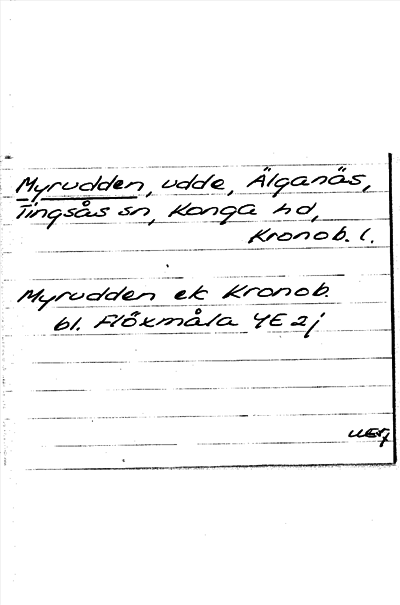 Myrudden, udde, Älganäs,
Tingsås sn, Konga hd,
Kronob. l.
Myrudden ek Kronob.
bl. Flöxmåla 4E2j